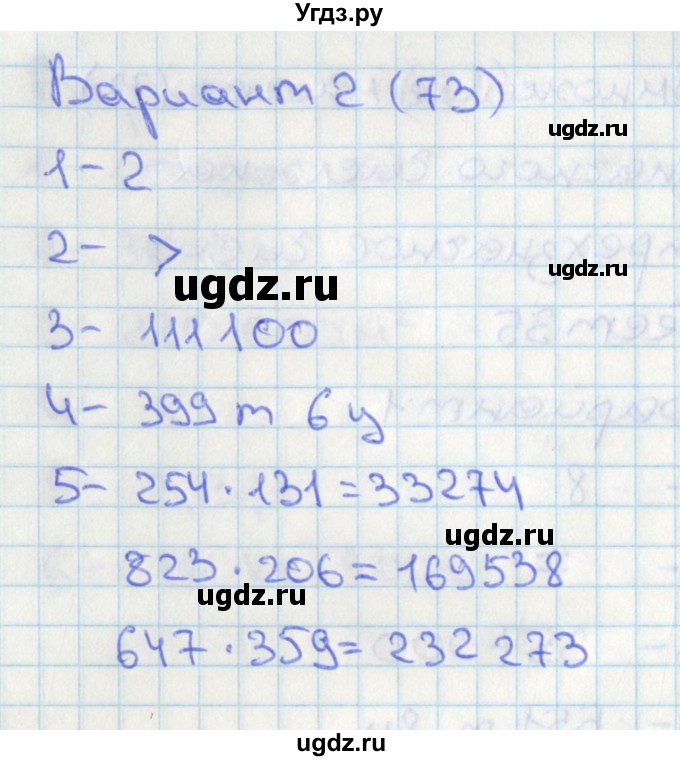 Угдз.ру
Вариант 2 (73)
ugdz.ru
1- 2
2- >
ugdz.ru
ugdz.ru
3- 111 100
4- 399 т 6 ц
5- 254 · 131 = 33274
ugdz.ru
823 · 206 = 169538
ugdz.ru
647 · 359 = 232 273
ugdz.ru